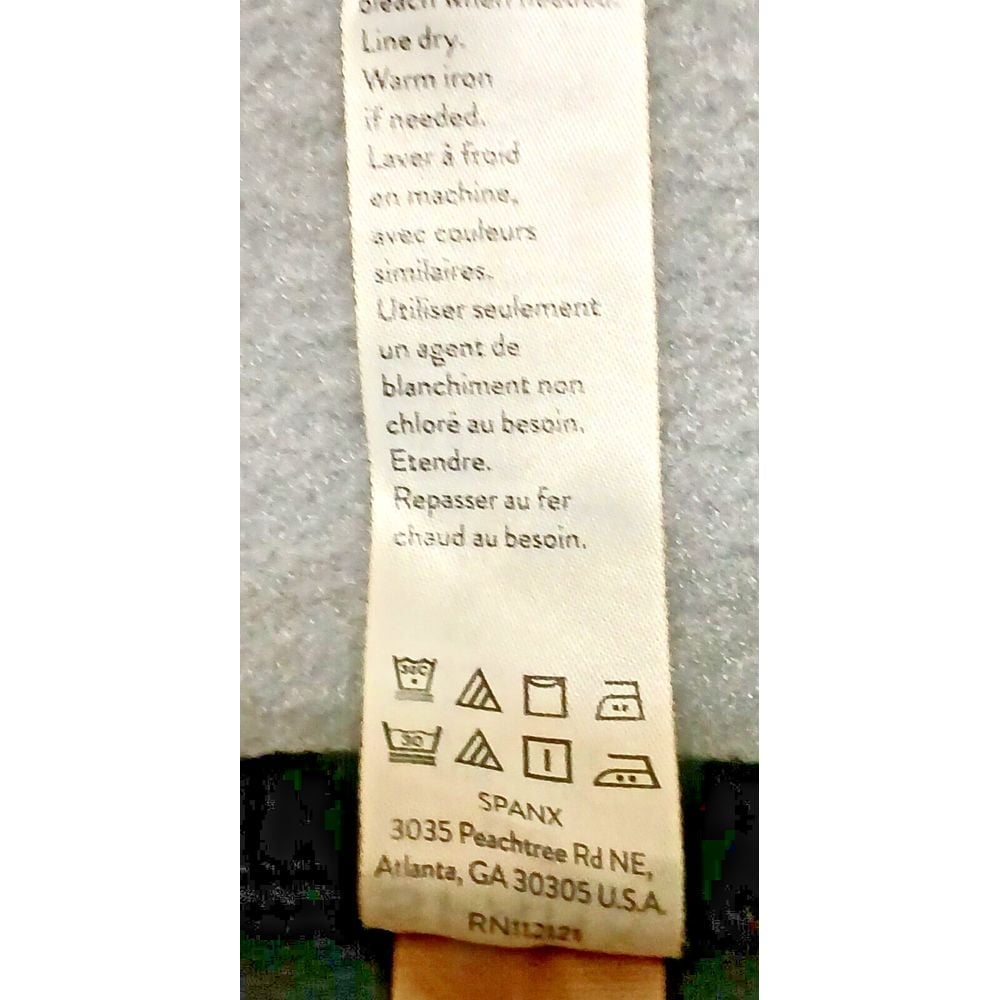 bleach when needed.
Line dry.
Warm iron
if needed.
Laver à froid
en machine,
avec couleurs
similaires.
Utiliser seulement
un agent de
blanchiment non
chloré au besoin.
Etendre.
Repasser au fer
chaud au besoin.
30C
30
SPANX
3035 Peachtree Rd NE,
Atlanta, GA 30305 U.S.A.